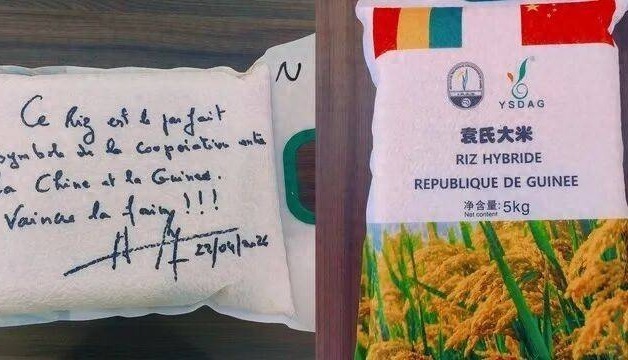 Ce Riz est le parfait
symbole de la coopération entre
la Chine et la Guinée.
Vaincre la faim !!!
22/04/2026
N
YSDAG
袁氏大米
RIZ HYBRIDE
REPUBLIQUE DE GUINEE
净含量: 5kg
Net content